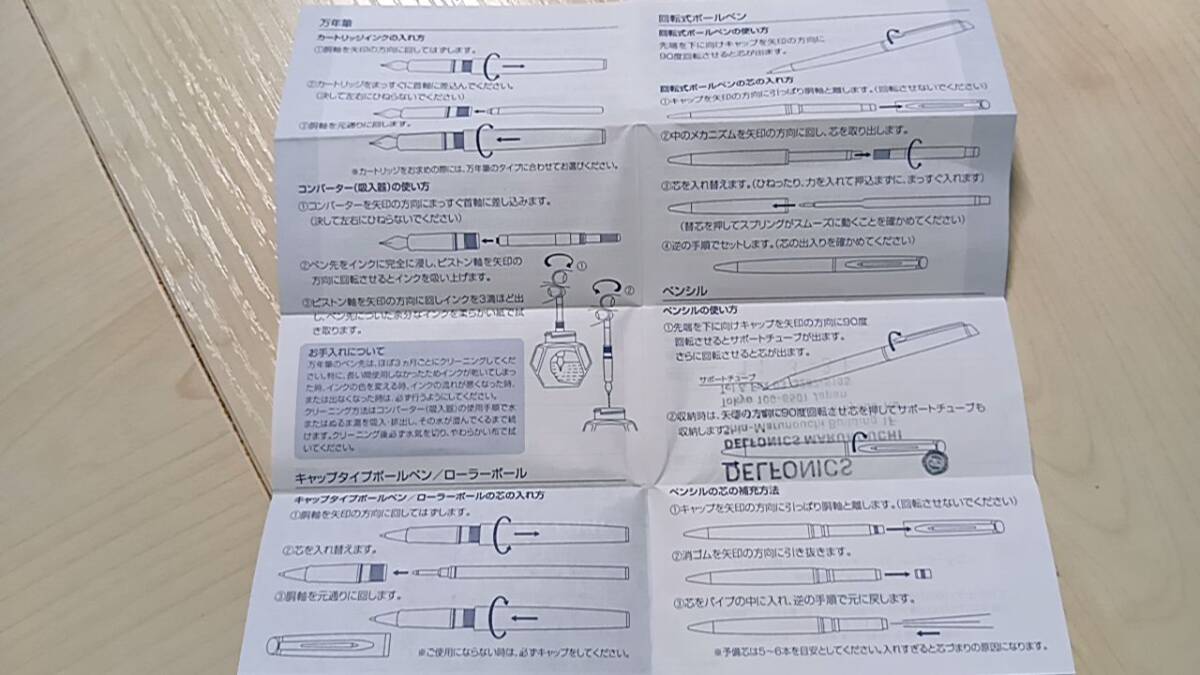 万年筆
カートリッジインクの入れ方
①胴軸を矢印の方向に回してはずします。
②カートリッジをまっすぐに首軸に差込んでください。
(決して左右にひねらないでください)
③胴軸を元通りに回します。
※カートリッジをお求めの際には、万年筆のタイプに合わせてお選びください。
コンバーター(吸入器)の使い方
①コンバーターを矢印の方向にまっすぐ首軸に差し込みます。
(決して左右にひねらないでください)
②ペン先をインクに完全に浸し、ピストン軸を矢印の
方向に回転させるとインクを吸い上げます。
①
②
③ピストン軸を矢印の方向に回しインクを3滴ほど出
し、ペン先についた余分なインクを柔らかい紙で拭
き取ります。
お手入れについて
万年筆のペン先は、ほぼ3ヵ月ごとにクリーニングしてくだ
さい。特に、長い間使用しなかったためインクが乾いてしまっ
た時、インクの色を変える時、インクの流れが悪くなった時、
または出なくなった時は、必ず行うようにしてください。
クリーニング方法はコンバーター(吸入器)の使用手順で水
またはぬるま湯を吸入・排出し、その水が澄んでくるまで続
けます。クリーニング後必ず水気を切り、やわらかい布で拭
いてください。
キャップタイプボールペン/ローラーボール
キャップタイプボールペン/ローラーボールの芯の入れ方
①胴軸を矢印の方向に回してはずします。
②芯を入れ替えます。
③胴軸を元通りに回します。
※ご使用にならない時は、必ずキャップをしてください。
回転式ボールペン
回転式ボールペンの使い方
先端を下に向けキャップを矢印の方向に
90度回転させると芯が出ます。
回転式ボールペンの芯の入れ方
①キャップを矢印の方向に引っぱり胴軸と離します。(回転させないでください)
②中のメカニズムを矢印の方向に回し、芯を取り出します。
③芯を入れ替えます。(ひねったり、力を入れて押込まずに、まっすぐ入れます)
(替芯を押してスプリングがスムーズに動くことを確かめてください)
④逆の手順でセットします。(芯の出入りを確かめてください)
ペンシル
ペンシルの使い方
①先端を下に向けキャップを矢印の方向に90度
回転させるとサポートチューブが出ます。
さらに回転させると芯が出ます。
サポートチューブ
Tokyo 100-6501 Japan
②収納時は、矢印の方向に90度回転させ芯を押してサポートチューブも
収納します。
Shin-Marunouchi Building 1F
DELFONICS MARUNOUCHI
DELFONICS
ペンシルの芯の補充方法
①キャップを矢印の方向に引っぱり胴軸と離します。(回転させないでください)
②消ゴムを矢印の方向に引き抜きます。
③芯をパイプの中に入れ、逆の手順で元に戻します。
※予備芯は5~6本を目安としてください。入れすぎると芯づまりの原因になります。